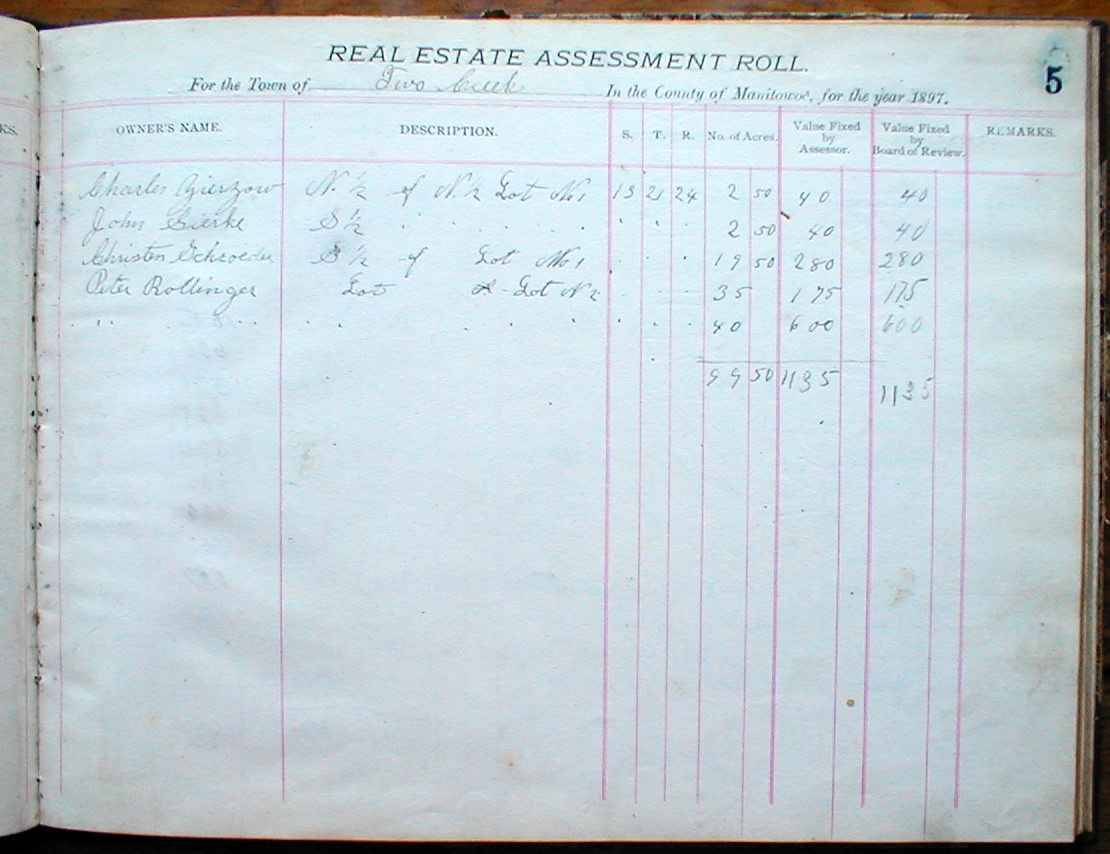 5
REAL ESTATE ASSESSMENT ROLL.
For the Town of Two Creek In the County of Manitowoc, for the year 1897.
KS.
OWNER'S NAME. DESCRIPTION. S. T. R. No. of Acres. Value Fixed by Assessor. Value Fixed by Board of Review. REMARKS.
Charles Gierzow N. ½ of N. ½ Lot No 1 13 21 24 2 50 40 40
John Gierke S ½ " " " " " " " " 2 50 40 40
Christen Schroeder S ½ of Lot No 1 " " " 19 50 280 280
Peter Rollinger Lot Lot No 2 " " " 35 175 175
" " " " " " " " " " " " 40 600 600
99 50 1135 1135